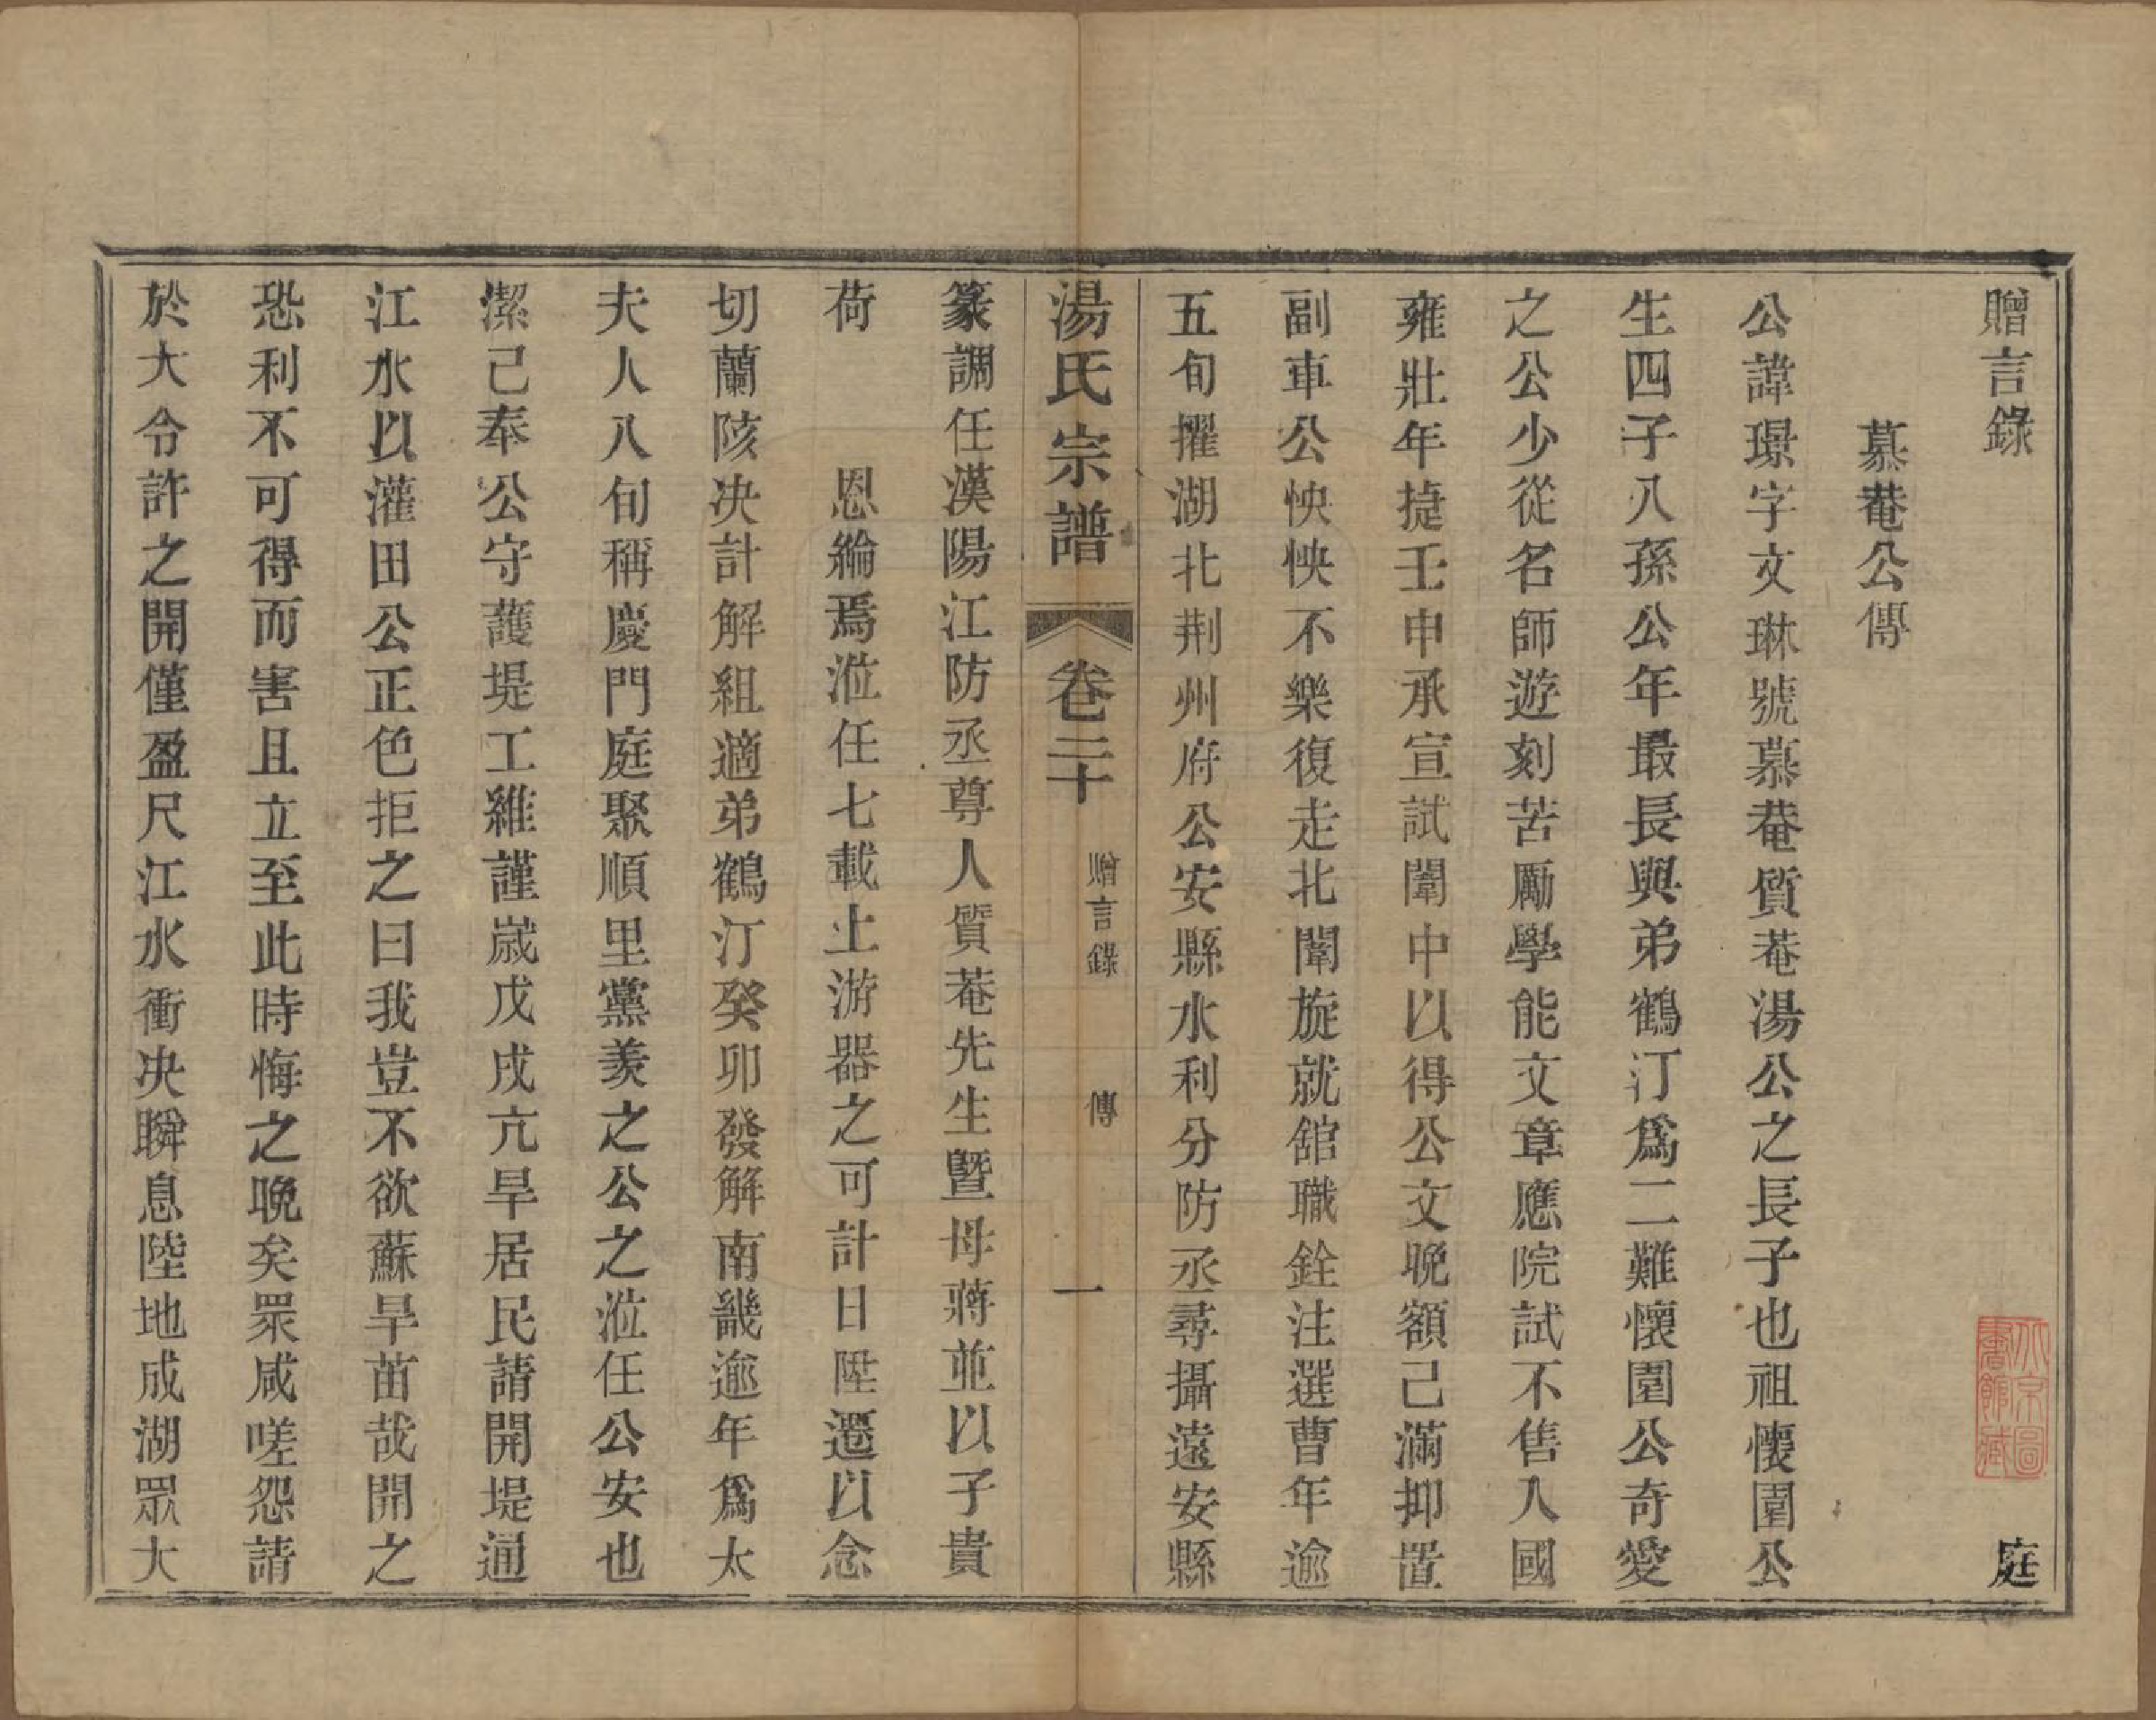 贈言錄 庭
慕菴公傳
公諱璟字文琳號慕菴質菴湯公之長子也祖懷園公
生四子八孫公年最長與弟鶴汀爲二難懷園公奇愛
之公少從名師遊刻苦勵學能文章應院試不售入國
雍壯年捷壬申承宣試闈中以得公文晚額已滿抑置
副車公怏怏不樂復走北闈旋就舘職銓注選曹年逾
五旬擢湖北荆州府公安縣水利分防丞尋攝遠安縣
湯氏宗譜 卷二十 贈言錄 傳 一
篆調任漢陽江防丞尊人質菴先生暨母蔣並以子貴
荷 恩綸焉涖任七載上游器之可計日陞遷以念
切蘭陔决計解組適弟鶴汀癸卯發解南畿逾年爲太
夫人八旬稱慶門庭聚順里黨羨之公之涖任公安也
潔己奉公守護堤工維謹歲戊戌亢旱居民請開堤通
江水以灌田公正色拒之曰我豈不欲蘇旱苗哉開之
恐利不可得而害且立至此時悔之晚矣眾咸嗟怨請
於大令許之開僅盈尺江水衝决瞬息陸地成湖眾大
北京圖書館藏